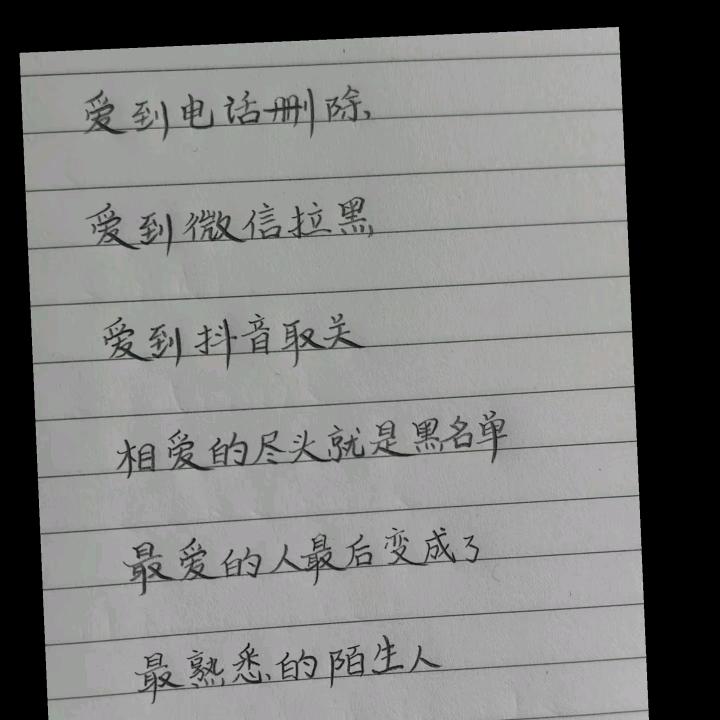 爱到电话删除,
爱到微信拉黑,
爱到抖音取关
相爱的尽头就是黑名单
最爱的人最后变成了
最熟悉的陌生人